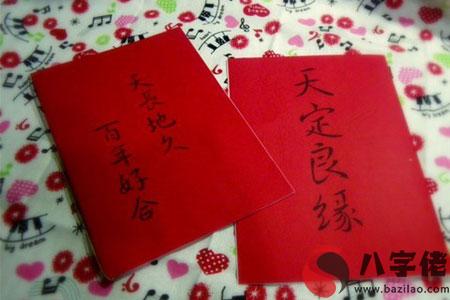 天長地久
百年好合
天定良缘
my dream
八字佬
www.bazilao.com